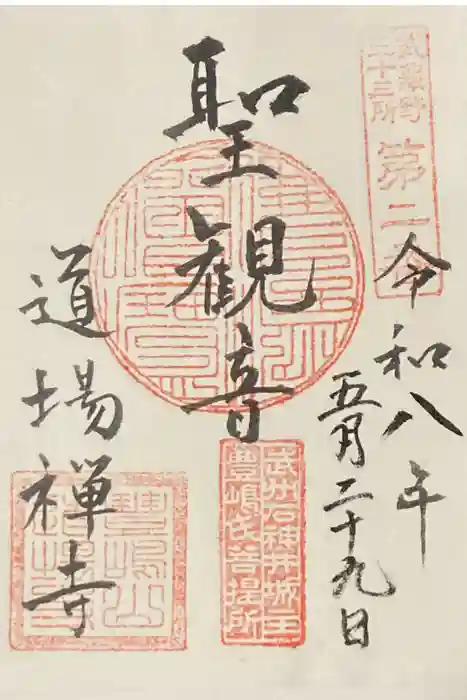 武蔵野
三十三所
第二番
令和八年
五月二十九日
聖観音
武州石神井城主
豊嶋氏菩提所
道場禅寺